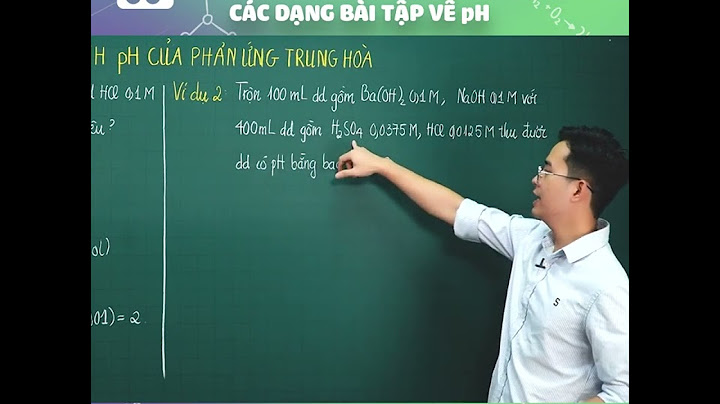 CÁC DẠNG BÀI TẬP VỀ pH
H pH CỦA PHẢN ỨNG TRUNG HOÀ
HCl 0,1M
Ví dụ 2: Trộn 100mL dd gồm Ba(OH)₂ 0,1M, NaOH 0,1M với
400mL dd gồm H₂SO₄ 0,0375M, HCl 0,0125M thu được
dd có pH bằng
01) = 2